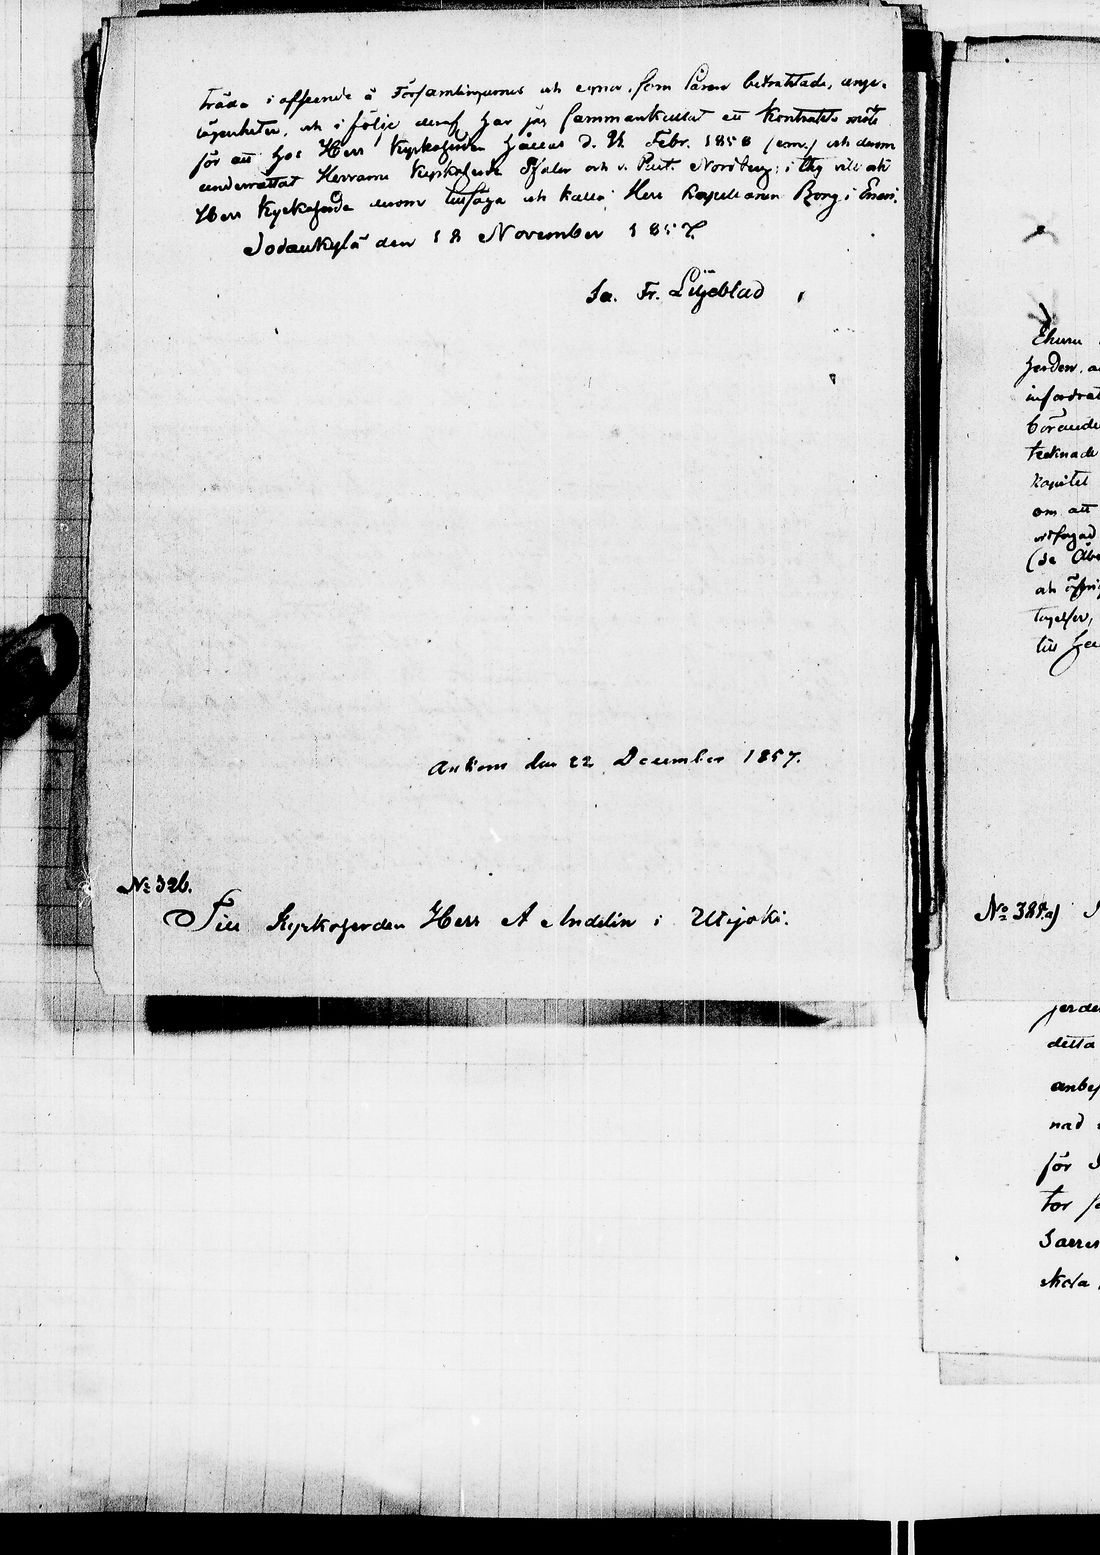 träda i afseende å Församlingarnes och egna, som Läran beträffade, ange-
lägenheter, och i följe deraf har jag sammankallat ett Kontrakts möte
för att hos Herr Kyrkoherden hållas d. Febr. 1858 och derom
underrättat Herrarne Kyrkoherde och v. Past. Nordberg; i thy vill ock
Herr Kyrkoherde tillsäga och kalla Herr Kapellanen Borg i Enari.
Sodankylä den 18 November 1857.
Ja. Fr. Liljeblad
Ankom den 22 December 1857.
No 326.
Till Kyrkoherden Herr A Andelin i Utsjoki.
Ehuru
herden, a
infordrat
börande
tecknade
kapitel
om att
(de Åbo
och öfrig
tagelser,
till
No 327 a)
jerde
detta
anbe
nad
för S
tor
skola